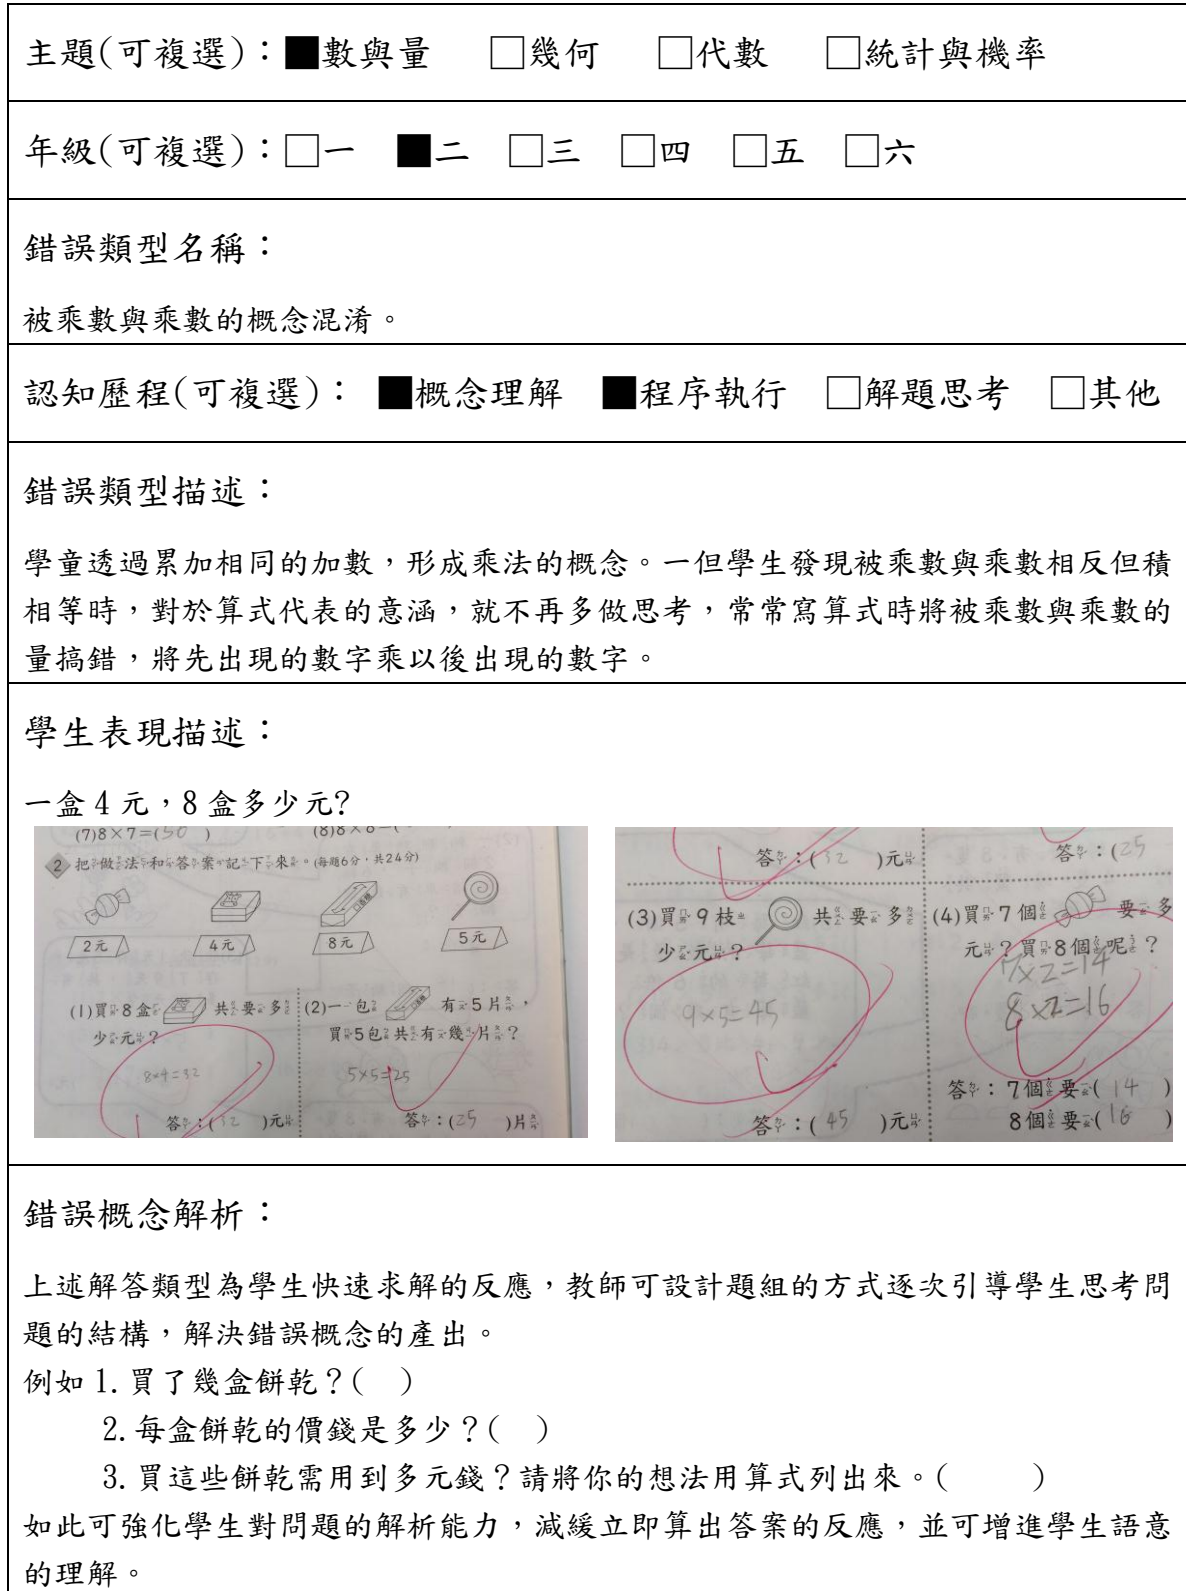 主題(可複選)：■數與量 □幾何 □代數 □統計與機率
年級(可複選)：□一 ■二 □三 □四 □五 □六
錯誤類型名稱：
被乘數與乘數的概念混淆。
認知歷程(可複選)： ■概念理解 ■程序執行 □解題思考 □其他
錯誤類型描述：
學童透過累加相同的加數，形成乘法的概念。一但學生發現被乘數與乘數相反但積
相等時，對於算式代表的意涵，就不再多做思考，常常寫算式時將被乘數與乘數的
量搞錯，將先出現的數字乘以後出現的數字。
學生表現描述：
一盒 4 元，8 盒多少元?
(7)8×7=(50 )
2 把做法和答案記下來。(每題6分，共24分)
2元 4元 8元 5元
(1)買8盒 共要多
少元？
8×4=32
答：(32 )元
(2)一包 有5片，
買5包共有幾片？
5×5=25
答：(25 )片
答：(32 )元
答：(25
(3)買9枝 共要多
少元？
9×5=45
答：( 45 )元
(4)買7個 要多
元？買8個呢？
7×2=14
8×2=16
答：7個要( 14 )
8個要( 16 )
錯誤概念解析：
上述解答類型為學生快速求解的反應，教師可設計題組的方式逐次引導學生思考問
題的結構，解決錯誤概念的產出。
例如 1. 買了幾盒餅乾？( )
2. 每盒餅乾的價錢是多少？( )
3. 買這些餅乾需用到多元錢？請將你的想法用算式列出來。( )
如此可強化學生對問題的解析能力，減緩立即算出答案的反應，並可增進學生語意
的理解。